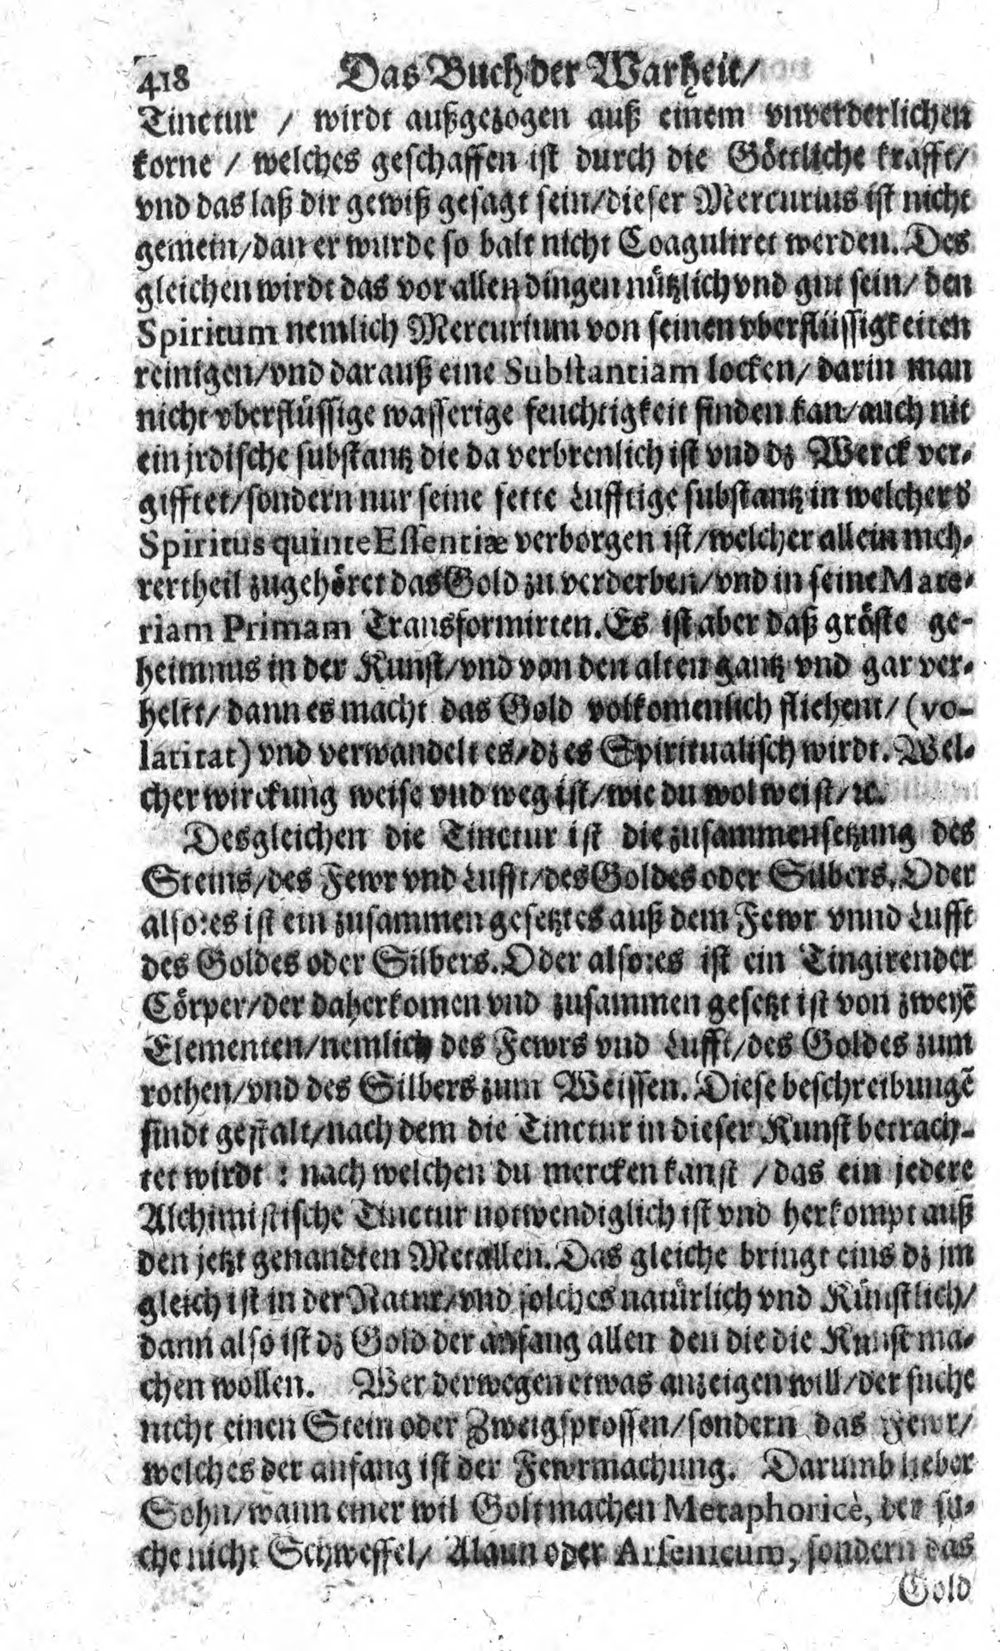 418 Das Buch der Warheit/
Tinctur / wirdt außgezogen auß einem vnverderlichen
korne / welches geschaffen ist durch die Göttliche krafft/
vnd das laß dir gewiß gesagt sein/dieser Mercurius ist nicht
gemein/dan er wurde so balt nicht Coaguliret werden. Des
gleichen wirdt das vor allen dingen nützlich vnd gut sein/ den
Spiritum nemlich Mercurium von seinen vberflüssigkeiten
reinigen/vnd darauß eine Substantiam locken/ darin man
nicht vberflüssige wasserige feuchtigkeit finden kan/auch nit
ein jrdische substantz die da verbrenlich ist vnd dz Werck ver-
gifftet/sondern nur seine fette Lufftige substantz in welcher d'
Spiritus quinte Essentiæ verborgen ist/welcher allein meh-
rertheil zugehöret das Gold zu verderben/vnd in seine Mate-
riam Primam Transformirten. Es ist aber daß gröste ge-
heimnus in der Kunst/vnd von den alten gantz vnd gar ver-
helet/ dann es macht das Gold volkomenlich fliehent/ (vo-
latitat) vnd verwandelt es/dz es Spiritualisch wirdt. Wel-
cher wirckung weise vnd weg ist/wie du wol weist/ꝛc.
Desgleichen die Tinctur ist die zusammensetzung des
Steins/des Fewr vnd Lufft/des Goldes oder Silbers. Oder
also: es ist ein zusammen gesetztes auß dem Fewr vnnd Lufft
des Goldes oder Silbers. Oder also: es ist ein Tingirender
Cörper/der daherkomen vnd zusammen gesetzt ist von zweyē
Elementen/nemlich des Fewrs vnd Lufft/des Goldes zum
rothen/vnd des Silbers zum Weissen. Diese beschreibungē
sindt gestalt/nach dem die Tinctur in dieser Kunst betrach-
tet wirdt : nach welchen du mercken kanst / das ein jedere
Alchimistische Tinctur notwendiglich ist vnd herkompt auß
den jetzt genandten Metallen. Das gleiche bringt eins dz jm
gleich ist in der Natur/vnd solches natürlich vnd Künstlich/
dann also ist dz Gold der anfang allen den die die Kunst ma-
chen wollen. Wer derwegen etwas anzeigen will/der suche
nicht einen Stein oder Zweigsprossen/sondern das Fewr/
welches der anfang ist der Fewrmachung. Darumb lieber
Sohn/wann einer wil Golt machen Metaphoricè, der su-
che nicht Schweffel/ Alaun oder Arsenicum, sondern das
Gold